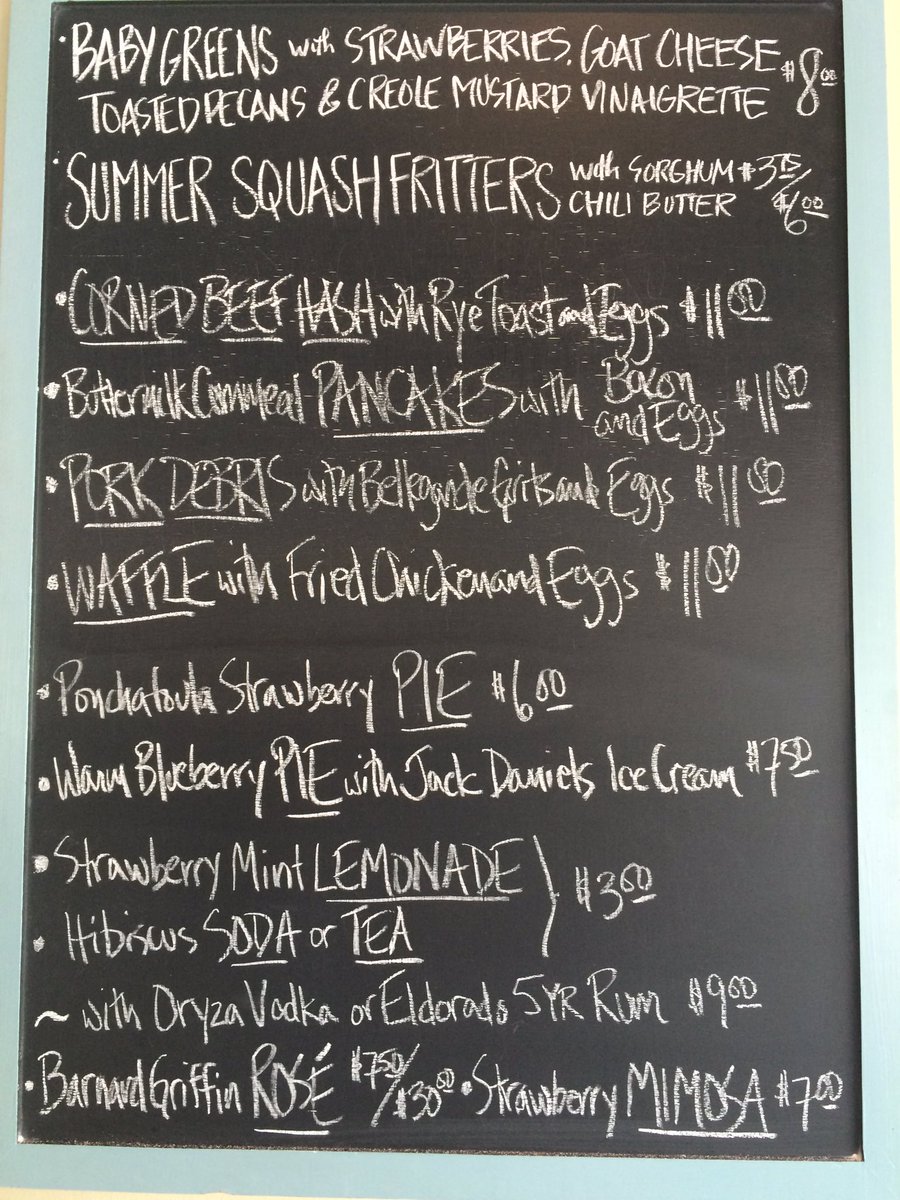 · BABY GREENS with STRAWBERRIES, GOAT CHEESE $8.00
TOASTED PECANS & CREOLE MUSTARD VINAIGRETTE
· SUMMER SQUASH FRITTERS with SORGHUM $3.75/
CHILI BUTTER $6.00
· CORNED BEEF HASH with Rye Toast and Eggs $11.00
· Buttermilk Cornmeal PANCAKES with Bacon and Eggs $11.00
· PORK DEBRIS with Bellegarde Grits and Eggs $11.00
· WAFFLE with Fried Chicken and Eggs $11.00
· Ponchatoula Strawberry PIE $6.00
· Warm Blueberry PIE with Jack Daniels Ice Cream $7.50
· Strawberry Mint LEMONADE } $3.00
· Hibiscus SODA or TEA
~ with Oryza Vodka or Eldorado 5 YR Rum $9.00
· Barnard Griffin ROSÉ $7.50/$30.00 · Strawberry MIMOSA $7.00